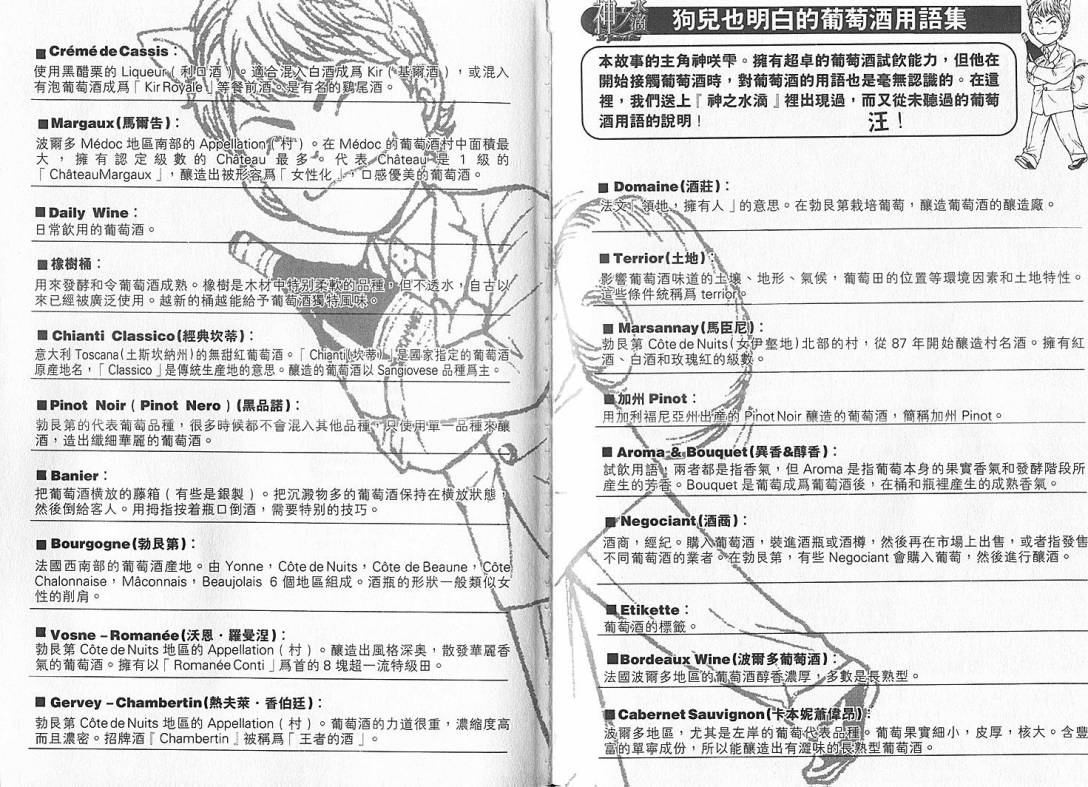 神之水滴
狗兒也明白的葡萄酒用語集
本故事的主角神咲雫。擁有超卓的葡萄酒試飲能力，但他在
開始接觸葡萄酒時，對葡萄酒的用語也是毫無認識的。在這
裡，我們送上『神之水滴』裡出現過，而又從未聽過的葡萄
酒用語的說明！
汪！
■ Domaine(酒莊)：
法文「領地，擁有人」的意思。在勃艮第栽培葡萄，釀造葡萄酒的釀造廠。
■ Terrior(土地)：
影響葡萄酒味道的土壤、地形、氣候，葡萄田的位置等環境因素和土地特性。
這些條件統稱爲 terrior。
■ Marsannay(馬臣尼)：
勃艮第 Côte de Nuits(女伊壑地)北部的村，從 87 年開始釀造村名酒。擁有紅
酒、白酒和玫瑰紅的級數。
■ 加州 Pinot：
用加利福尼亞州出産的 Pinot Noir 釀造的葡萄酒，簡稱加州 Pinot。
■ Aroma & Bouquet(異香&醇香)：
試飲用語，兩者都是指香氣，但 Aroma 是指葡萄本身的果實香氣和發酵階段所
産生的芳香。Bouquet 是葡萄成爲葡萄酒後，在桶和瓶裡産生的成熟香氣。
■ Negociant(酒商)：
酒商，經紀。購入葡萄酒，裝進酒瓶或酒樽，然後再在市場上出售，或者指發售
不同葡萄酒的業者。在勃艮第，有些 Negociant 會購入葡萄，然後進行釀酒。
■ Etikette：
葡萄酒的標籤。
■Bordeaux Wine(波爾多葡萄酒)：
法國波爾多地區的葡萄酒醇香濃厚，多數是長熟型。
■ Cabernet Sauvignon(卡本妮蕭偉昂)：
波爾多地區，尤其是左岸的葡萄代表品種。葡萄果實細小，皮厚，核大。含豐
富的單寧成份，所以能釀造出有澀味的長熟型葡萄酒。
■ Crémé de Cassis：
使用黑醋栗的 Liqueur(利口酒)。適合混入白酒成爲 Kir(基爾酒)，或混入
有泡葡萄酒成爲「Kir Royale」等餐前酒。是有名的鷄尾酒。
■Margaux(馬爾告)：
波爾多 Médoc 地區南部的 Appellation(村)。在 Médoc 的葡萄酒村中面積最
大，擁有認定級數的 Château 最多。代表 Château 是 1 級的
「ChâteauMargaux」，釀造出被形容爲「女性化」，口感優美的葡萄酒。
■ Daily Wine：
日常飲用的葡萄酒。
■ 橡樹桶：
用來發酵和令葡萄酒成熟。橡樹是木材中特別柔軟的品種，但不透水，自古以
來已經被廣泛使用。越新的桶越能給予葡萄酒獨特風味。
■ Chianti Classico(經典坎蒂)：
意大利 Toscana(土斯坎納州)的無甜紅葡萄酒。「Chianti(坎蒂)」是國家指定的葡萄酒
原産地名，「Classico」是傳統生産地的意思。釀造的葡萄酒以 Sangiovese 品種爲主。
■Pinot Noir(Pinot Nero)(黑品諾)：
勃艮第的代表葡萄品種，很多時候都不會混入其他品種，只使用單一品種來釀
酒，造出纖細華麗的葡萄酒。
■ Banier：
把葡萄酒橫放的藤箱(有些是銀製)。把沉澱物多的葡萄酒保持在橫放狀態，
然後倒給客人。用拇指按着瓶口倒酒，需要特別的技巧。
■ Bourgogne(勃艮第)：
法國西南部的葡萄酒産地。由 Yonne，Côte de Nuits，Côte de Beaune，Côte
Chalonnaise，Mâconnais，Beaujolais 6 個地區組成。酒瓶的形狀一般類似女
性的削肩。
■ Vosne – Romanée(沃恩・羅曼涅)：
勃艮第 Côte de Nuits 地區的 Appellation(村)。釀造出風格深奥，散發華麗香
氣的葡萄酒。擁有以「Romanée Conti」爲首的 8 塊超一流特級田。
■ Gervey – Chambertin(熱夫萊・香伯廷)：
勃艮第 Côte de Nuits 地區的 Appellation(村)。葡萄酒的力道很重，濃縮度高
而且濃密。招牌酒『Chambertin』被稱爲「王者的酒」。